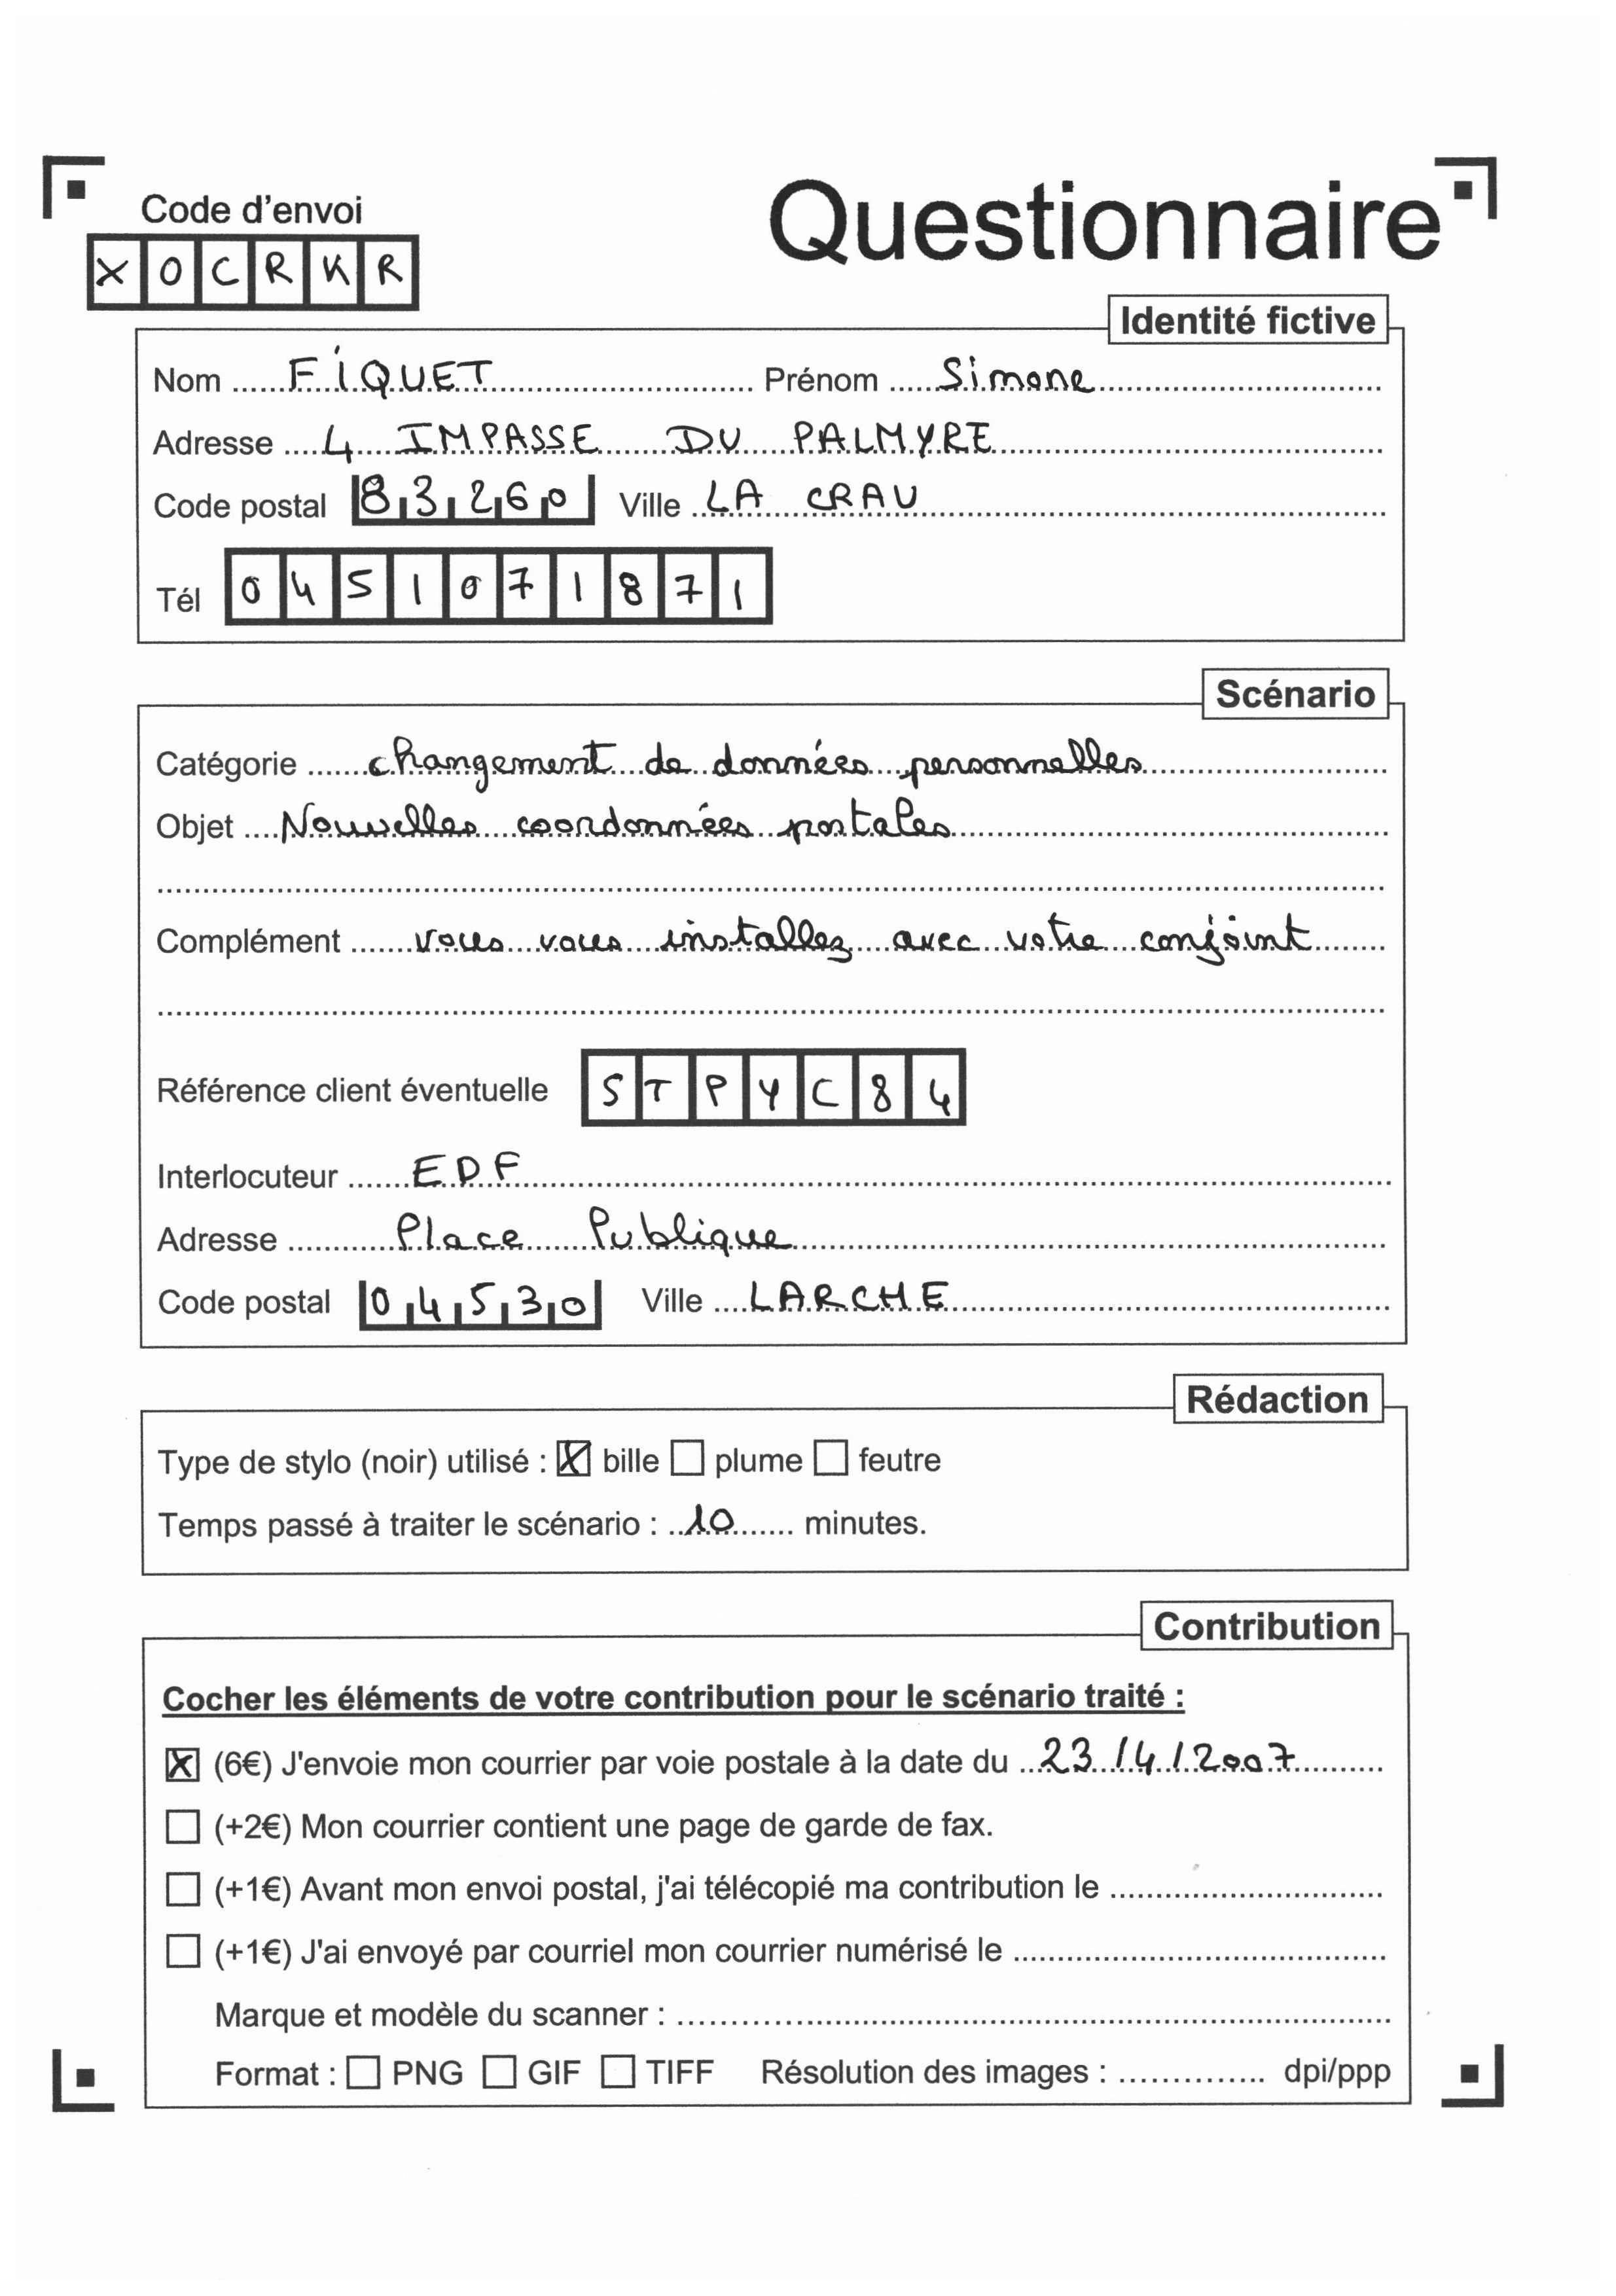 Code d'envoi
Questionnaire
XOCRKR
Identité fictive
Nom ...... FIQUET ...... Prénom ...... Simone ......
Adresse ..... 4 IMPASSE DU PALMYRE ......
Code postal 83260 Ville LA CRAU ......
Tél 0451071871
Scénario
Catégorie ...... changement de données personnelles ......
Objet .... Nouvelles coordonnées postales ......
Complément ...... vous vous installez avec votre conjoint ......
Référence client éventuelle STPYC84
Interlocuteur ...... EDF ......
Adresse ...... Place Publique ......
Code postal 04530 Ville .... LARCHE ......
Rédaction
Type de stylo (noir) utilisé : ☒ bille ☐ plume ☐ feutre
Temps passé à traiter le scénario : .. 10 ...... minutes.
Contribution
Cocher les éléments de votre contribution pour le scénario traité :
☒ (6€) J'envoie mon courrier par voie postale à la date du ... 23/4/2007 ......
☐ (+2€) Mon courrier contient une page de garde de fax.
☐ (+1€) Avant mon envoi postal, j'ai télécopié ma contribution le ......
☐ (+1€) J'ai envoyé par courriel mon courrier numérisé le ......
Marque et modèle du scanner : ......
Format : ☐ PNG ☐ GIF ☐ TIFF Résolution des images : ...... dpi/ppp